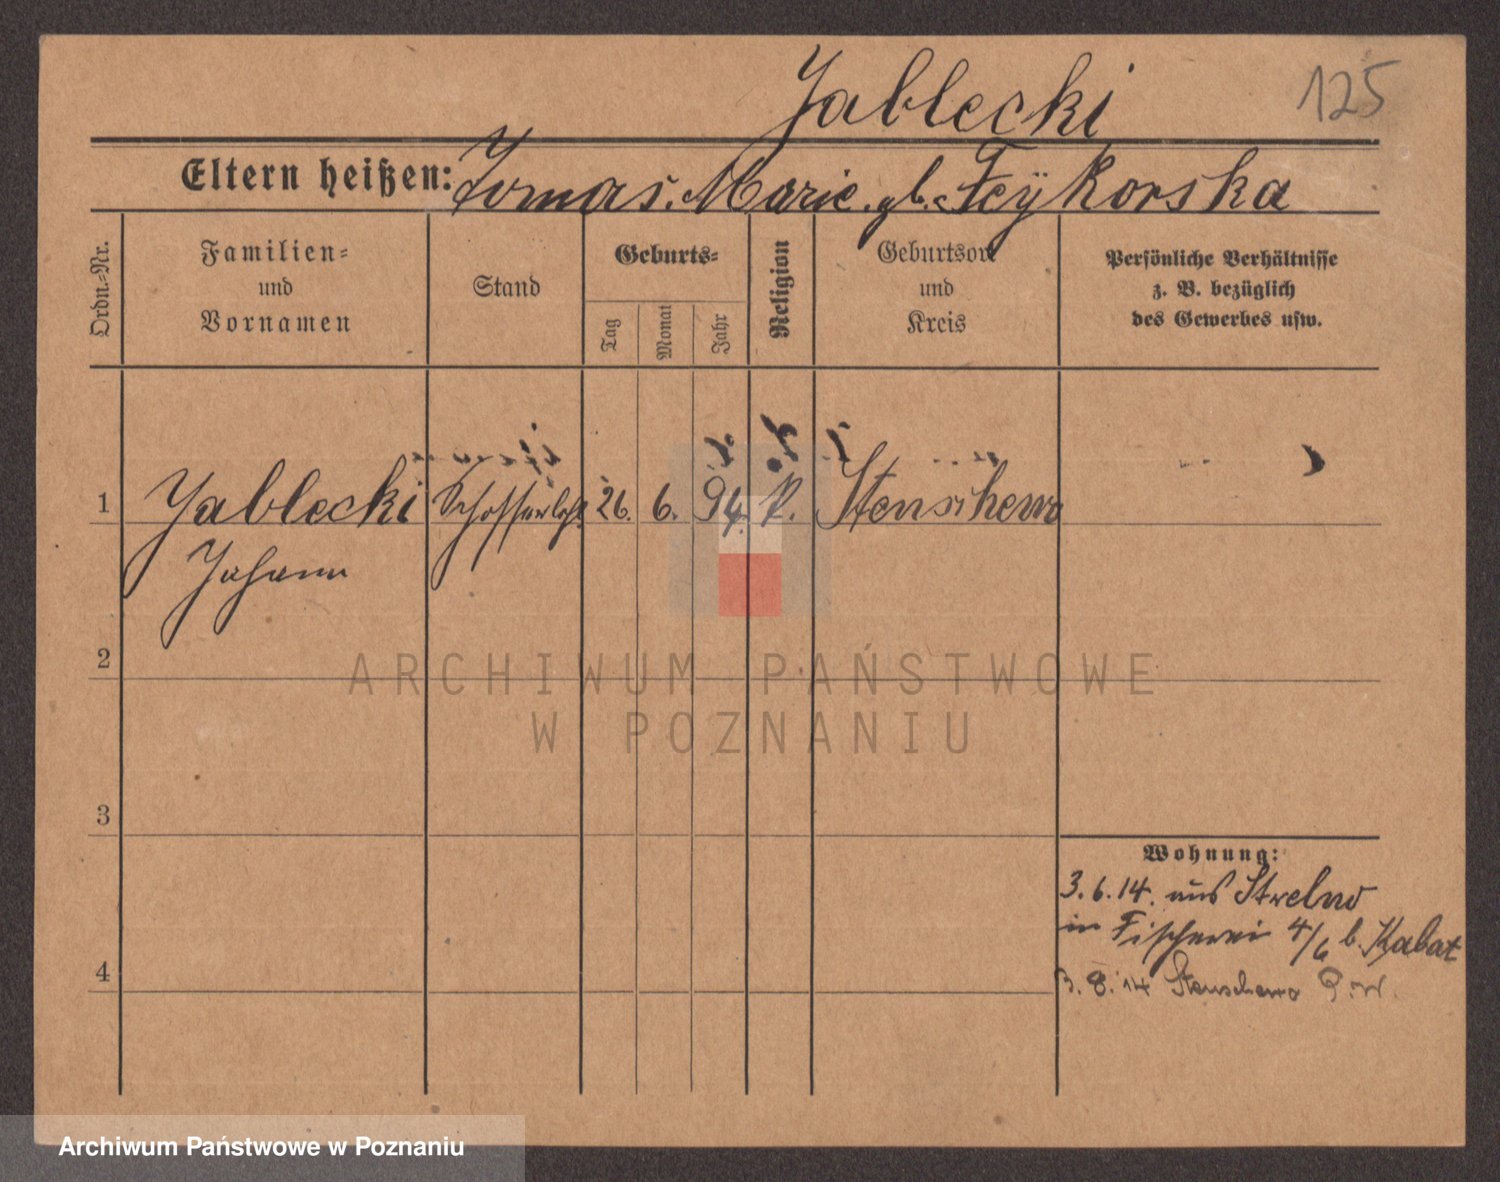 125
Jablecki
Eltern heißen: Tomas. Marie. gb. Feÿkorska
Ordn.-Nr.
Familien-
und
Vornamen
Stand
Geburts-
Tag
Monat
Jahr
Religion
Geburtsort
und
Kreis
Persönliche Verhältnisse
z. B. bezüglich
des Gewerbes usw.
1 Jablecki 26. 6. 94. k. Stenschewo
Johann
2
3
4
Wohnung:
3.6.14. aus Strelno
in Fischerei 4/6 b. Kabat
3.8.14 Stenschewo P.W.
ARCHIWUM PAŃSTWOWE
W POZNANIU
Archiwum Państwowe w Poznaniu